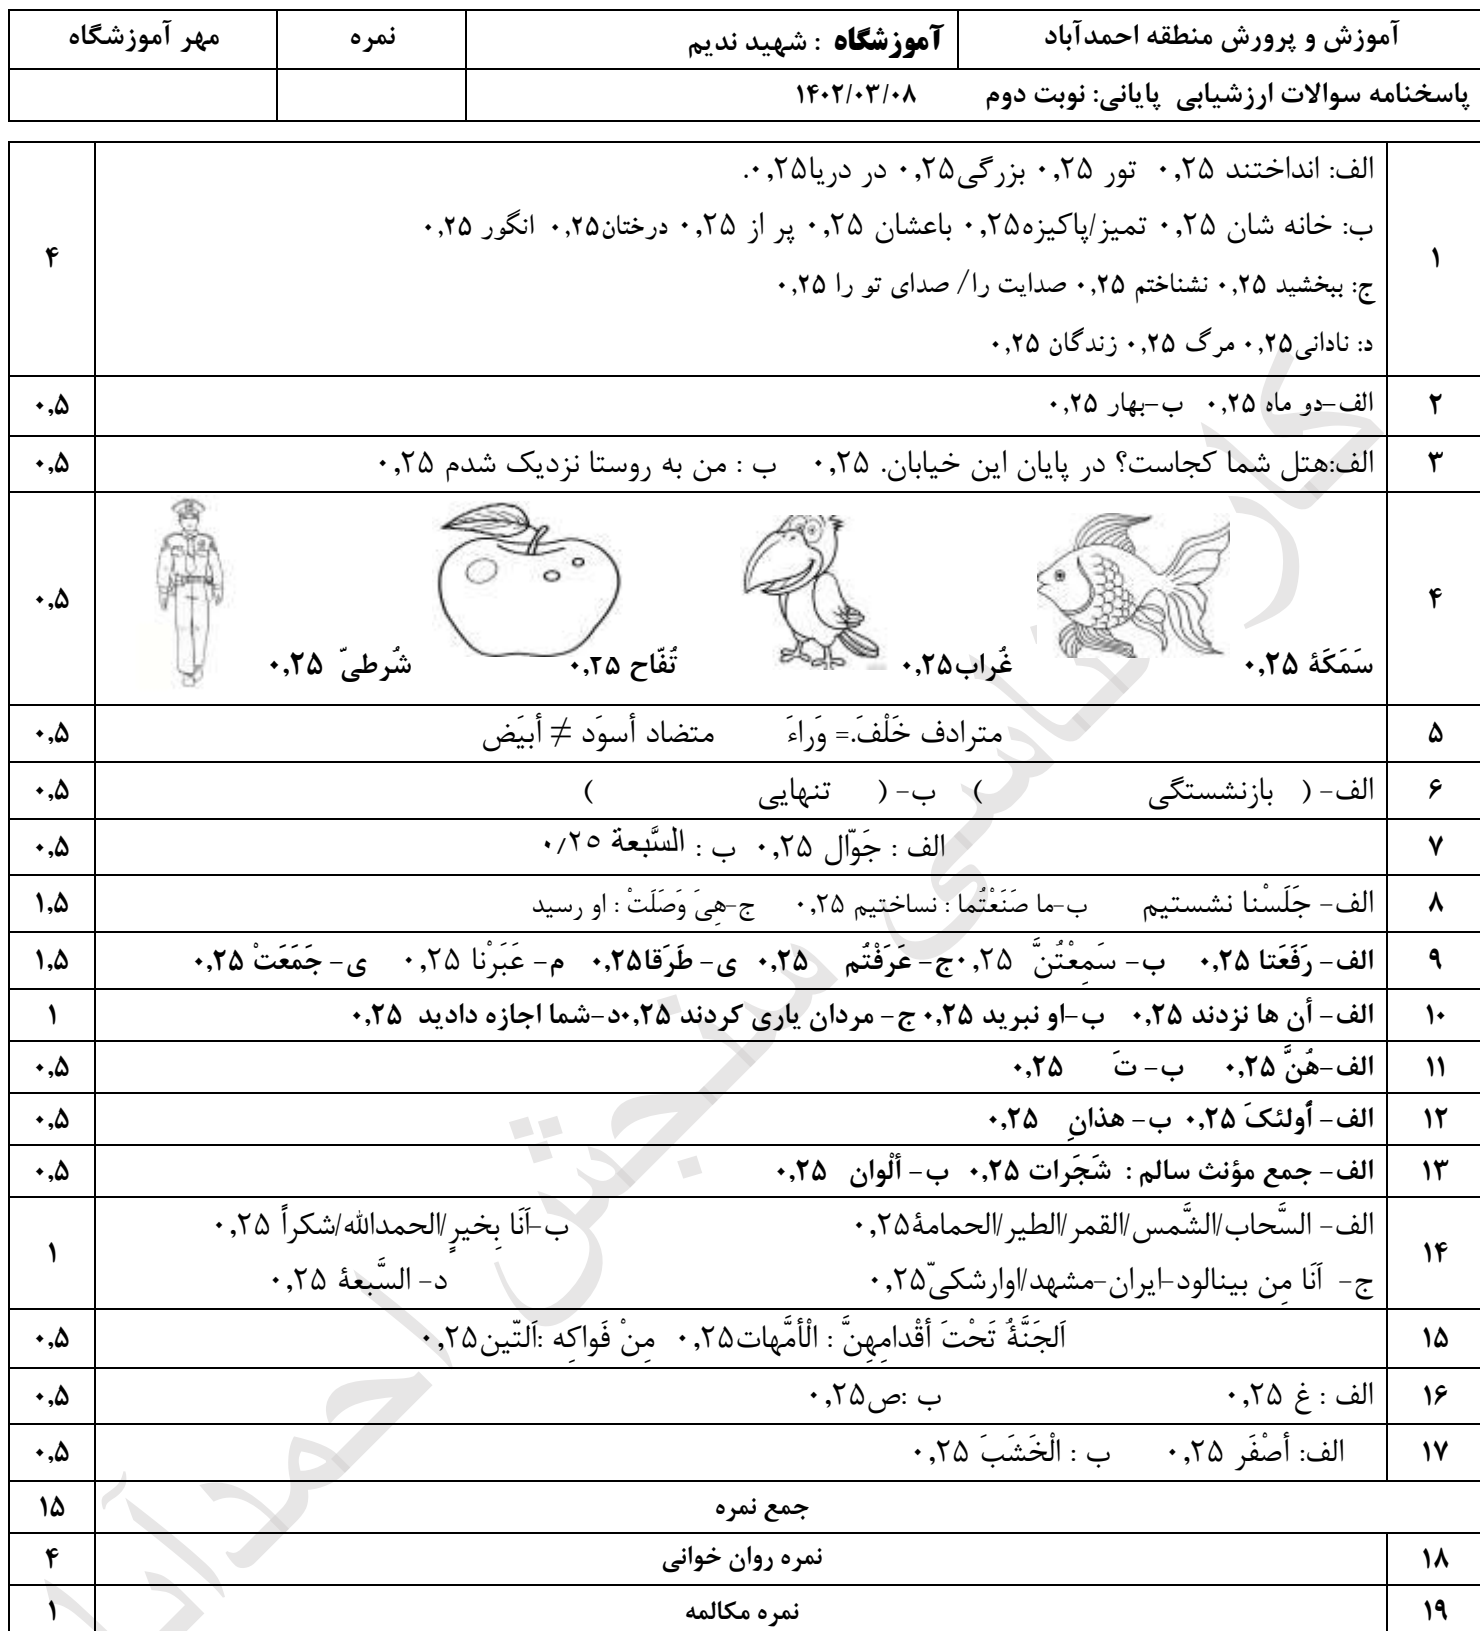 آموزش و پرورش منطقه احمدآباد آموزشگاه : شهید ندیم نمره مهر آموزشگاه
پاسخنامه سوالات ارزشیابی پایانی: نوبت دوم ۱۴۰۲/۰۳/۰۸
۱ الف: انداختند ۰,۲۵ تور ۰,۲۵ بزرگی۰,۲۵ در دریا۰,۲۵.
ب: خانه شان ۰,۲۵ تمیز/پاکیزه۰,۲۵ باعشان ۰,۲۵ پر از ۰,۲۵ درختان۰,۲۵ انگور ۰,۲۵
ج: ببخشید ۰,۲۵ نشناختم ۰,۲۵ صدایت را/ صدای تو را ۰,۲۵
د: نادانی۰,۲۵ مرگ ۰,۲۵ زندگان ۰,۲۵
۴
۲ الف-دو ماه ۰,۲۵ ب-بهار ۰,۲۵ ۰,۵
۳ الف:هتل شما کجاست؟ در پایان این خیابان. ۰,۲۵ ب : من به روستا نزدیک شدم ۰,۲۵ ۰,۵
۴ سَمَکَة ۰,۲۵ غُراب۰,۲۵ تُفّاح ۰,۲۵ شُرطیّ ۰,۲۵ ۰,۵
۵ مترادف خَلْفَ.= وَراءَ متضاد أسوَد ≠ أبیَض ۰,۵
۶ الف- ( بازنشستگی ) ب- ( تنهایی ) ۰,۵
۷ الف : جَوّال ۰,۲۵ ب : السَّبعة ۰/۲۵ ۰,۵
۸ الف- جَلَسْنا نشستیم ب-ما صَنَعْتُما : نساختیم ۰,۲۵ ج-هیَ وَصَلَتْ : او رسید ۱,۵
۹ الف- رَفَعَتا ۰,۲۵ ب- سَمِعْتُنَّ ۰,۲۵ج- عَرَفْتُم ۰,۲۵ ی- طَرَقا۰,۲۵ م- عَبَرْنا ۰,۲۵ ی- جَمَعَتْ ۰,۲۵ ۱,۵
۱۰ الف- أن ها نزدند ۰,۲۵ ب-او نبرید ۰,۲۵ ج- مردان یاری کردند ۰,۲۵د-شما اجازه دادید ۰,۲۵ ۱
۱۱ الف-هُنَّ ۰,۲۵ ب- تَ ۰,۲۵ ۰,۵
۱۲ الف- أولئکَ ۰,۲۵ ب- هذانِ ۰,۲۵ ۰,۵
۱۳ الف- جمع مؤنث سالم : شَجَرات ۰,۲۵ ب- ألْوان ۰,۲۵ ۰,۵
۱۴ الف- السَّحاب/الشَّمس/القمر/الطیر/الحمامة۰,۲۵ ب-اَنَا بِخیرٍ/الحمدالله/شکراً ۰,۲۵
ج- اَنَا مِن بینالود-ایران-مشهد/اوارشکیّ۰,۲۵ د- السَّبعة ۰,۲۵
۱
۱۵ اَلجَنَّةُ تَحْتَ أقْدامِهِنَّ : الْأمَّهات۰,۲۵ مِنْ فَواکِه :اَلتّین۰,۲۵ ۰,۵
۱۶ الف : غ ۰,۲۵ ب :ص۰,۲۵ ۰,۵
۱۷ الف: أصْفَر ۰,۲۵ ب : الْخَشَبَ ۰,۲۵ ۰,۵
جمع نمره ۱۵
۱۸ نمره روان خوانی ۴
۱۹ نمره مکالمه ۱